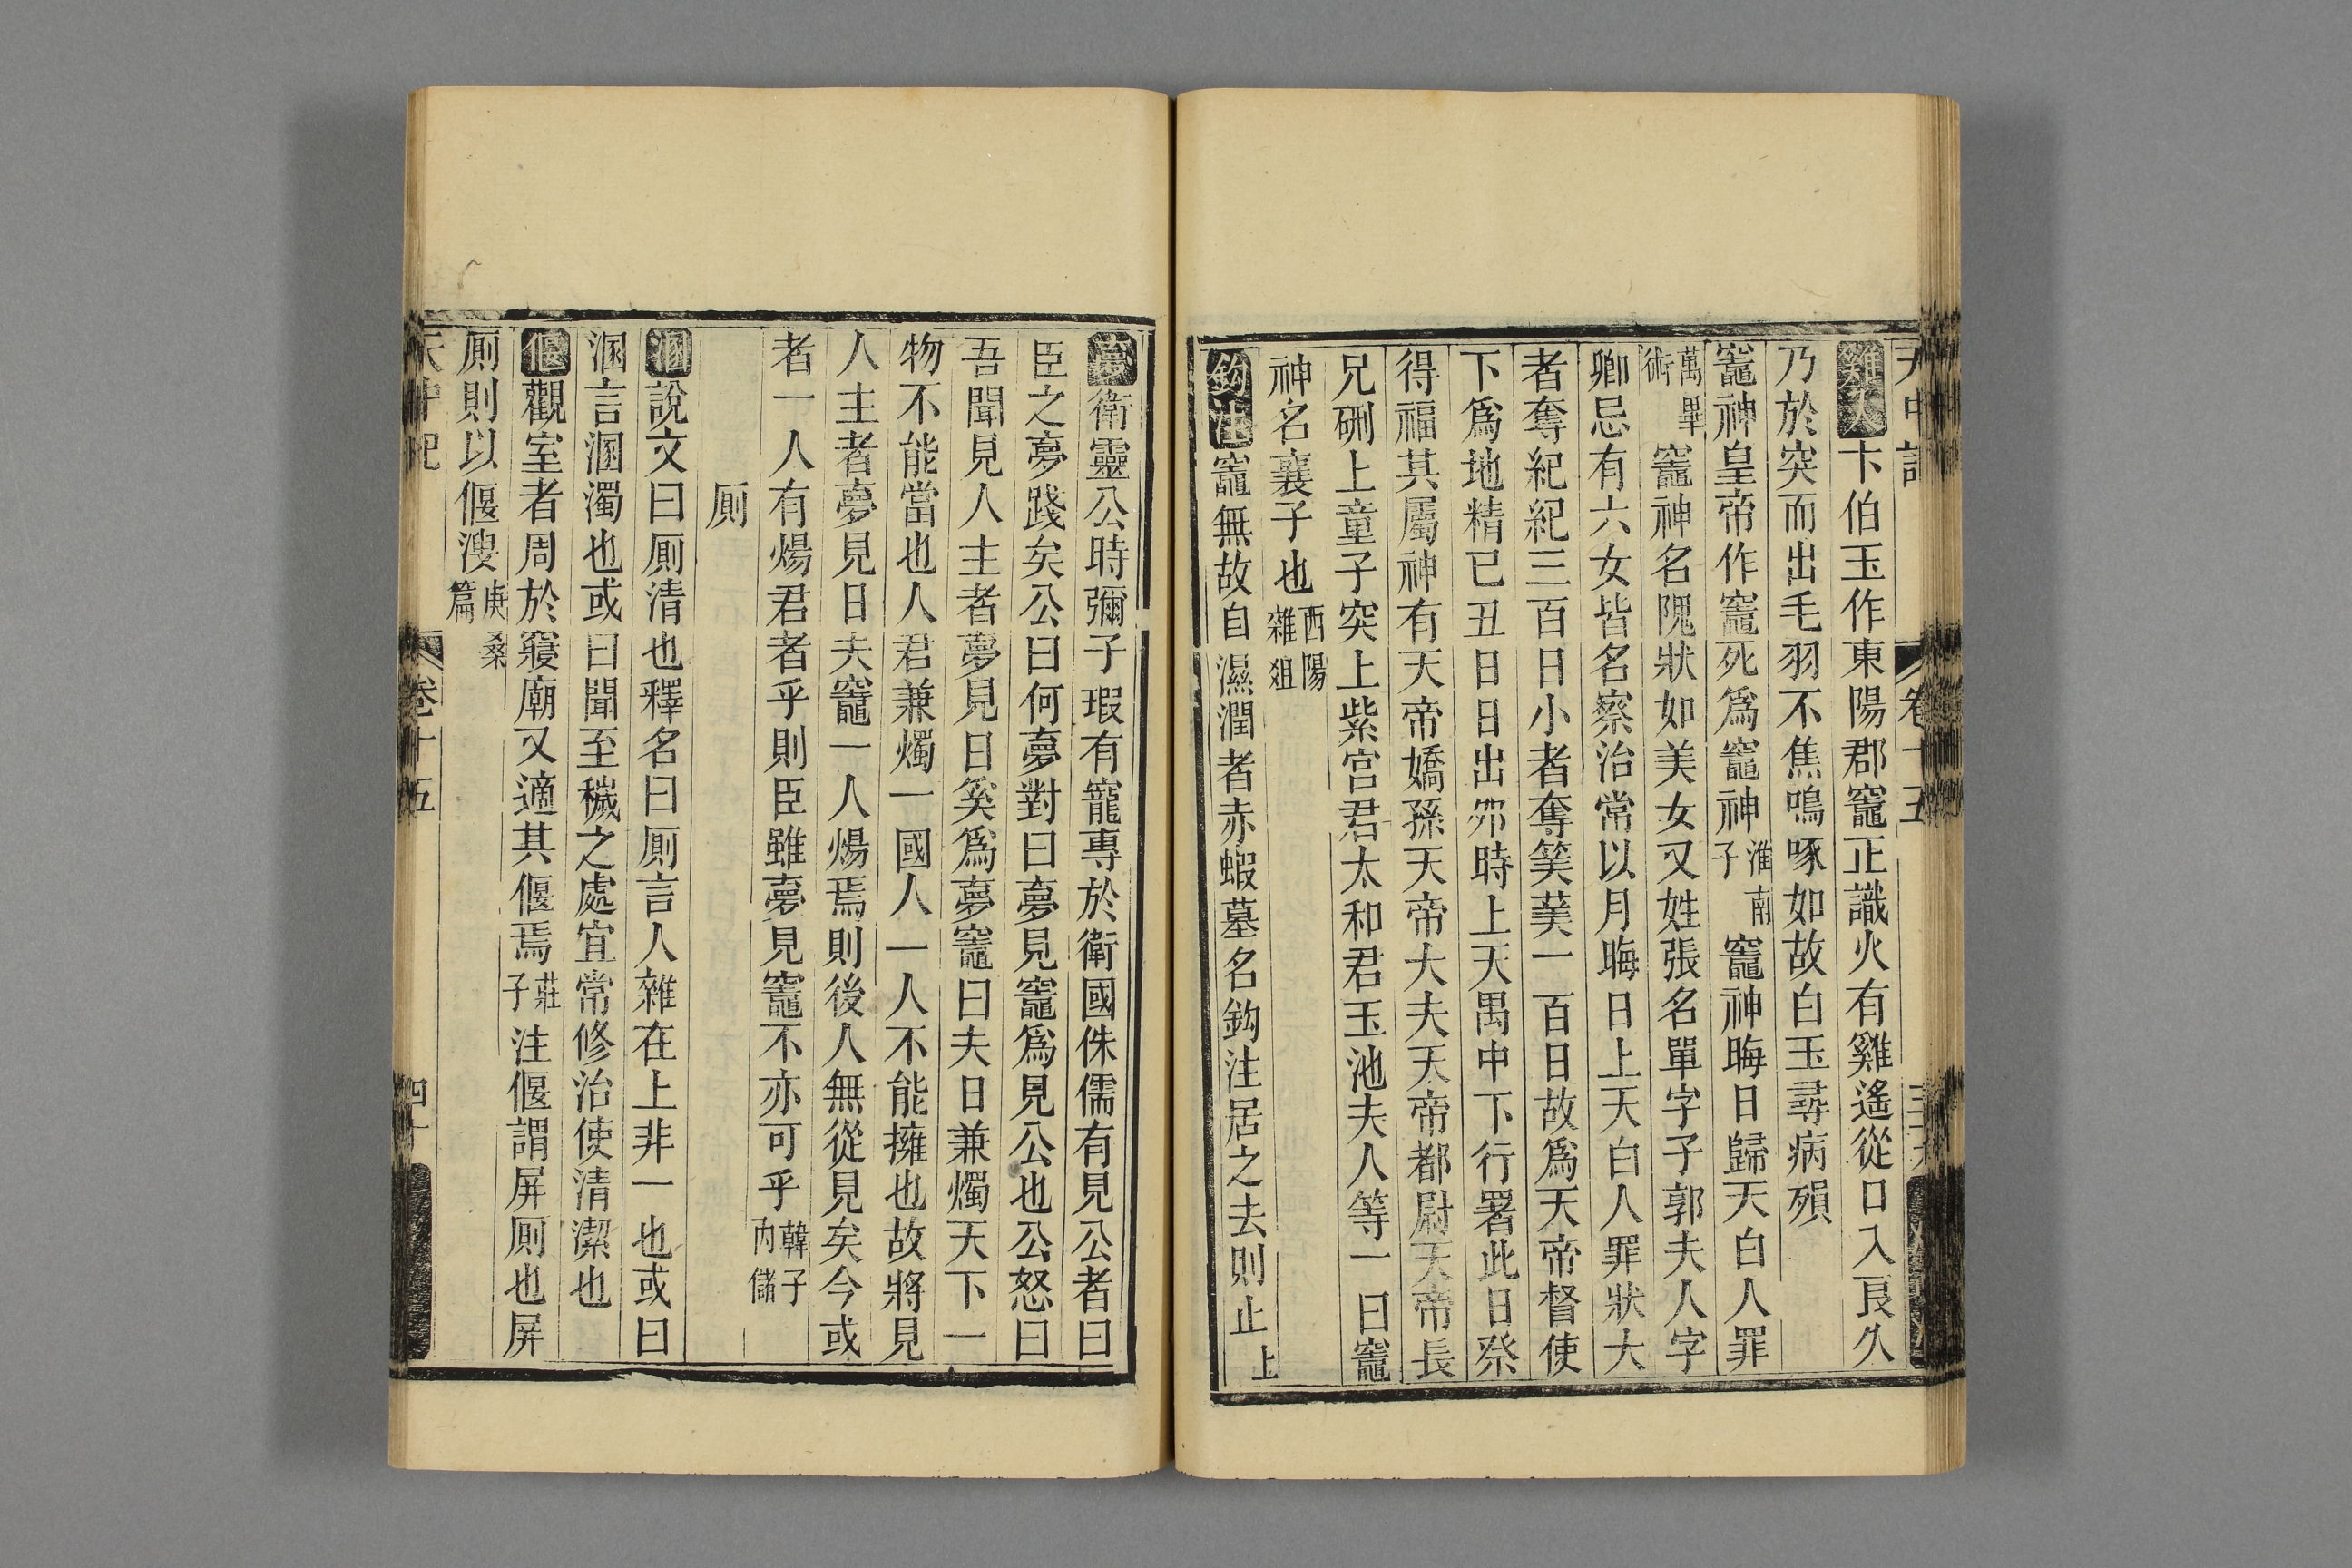 天中記 卷十五
雞入卞伯玉作東陽郡竈正識火有雞遙從口入良久
乃於突而出毛羽不焦鳴啄如故白玉尋病殞
竈神皇帝作竈死爲竈神淮南子竈神晦日歸天白人罪
萬畢術竈神名隗狀如美女又姓張名單字子郭夫人字
卿忌有六女皆名察治常以月晦日上天白人罪狀大
者奪紀紀三百日小者奪筭筭一百日故爲天帝督使
下爲地精已丑日日出夘時上天禺中下行署此日祭
得福其屬神有天帝嬌孫天帝大夫天帝都尉天帝長
兄硎上童子突上紫宫君太和君玉池夫人等一曰竈
神名襄子也西陽雜俎
鈎注竈無故自濕潤者赤蝦蟇名鈎注居之去則止上
夢衛靈公時彌子瑕有寵專於衛國侏儒有見公者曰
臣之夢踐矣公曰何夢對曰夢見竈爲見公也公怒曰
吾聞見人主者夢見日奚爲夢竈曰夫日兼燭天下一
物不能當也人君兼燭一國人一人不能擁也故將見
人主者夢見日夫竈一人煬焉則後人無從見矣今或
者一人有煬君者乎則臣雖夢見竈不亦可乎韓子內儲
厠
溷說文曰厠清也釋名曰厠言人雜在上非一也或曰
溷言溷濁也或曰聞至穢之處宜常修治使清潔也
偃觀室者周於寢廟又適其偃焉莊子注偃謂屏厠也屏
厠則以偃溲庚桑篇
天中記 卷十五 四十